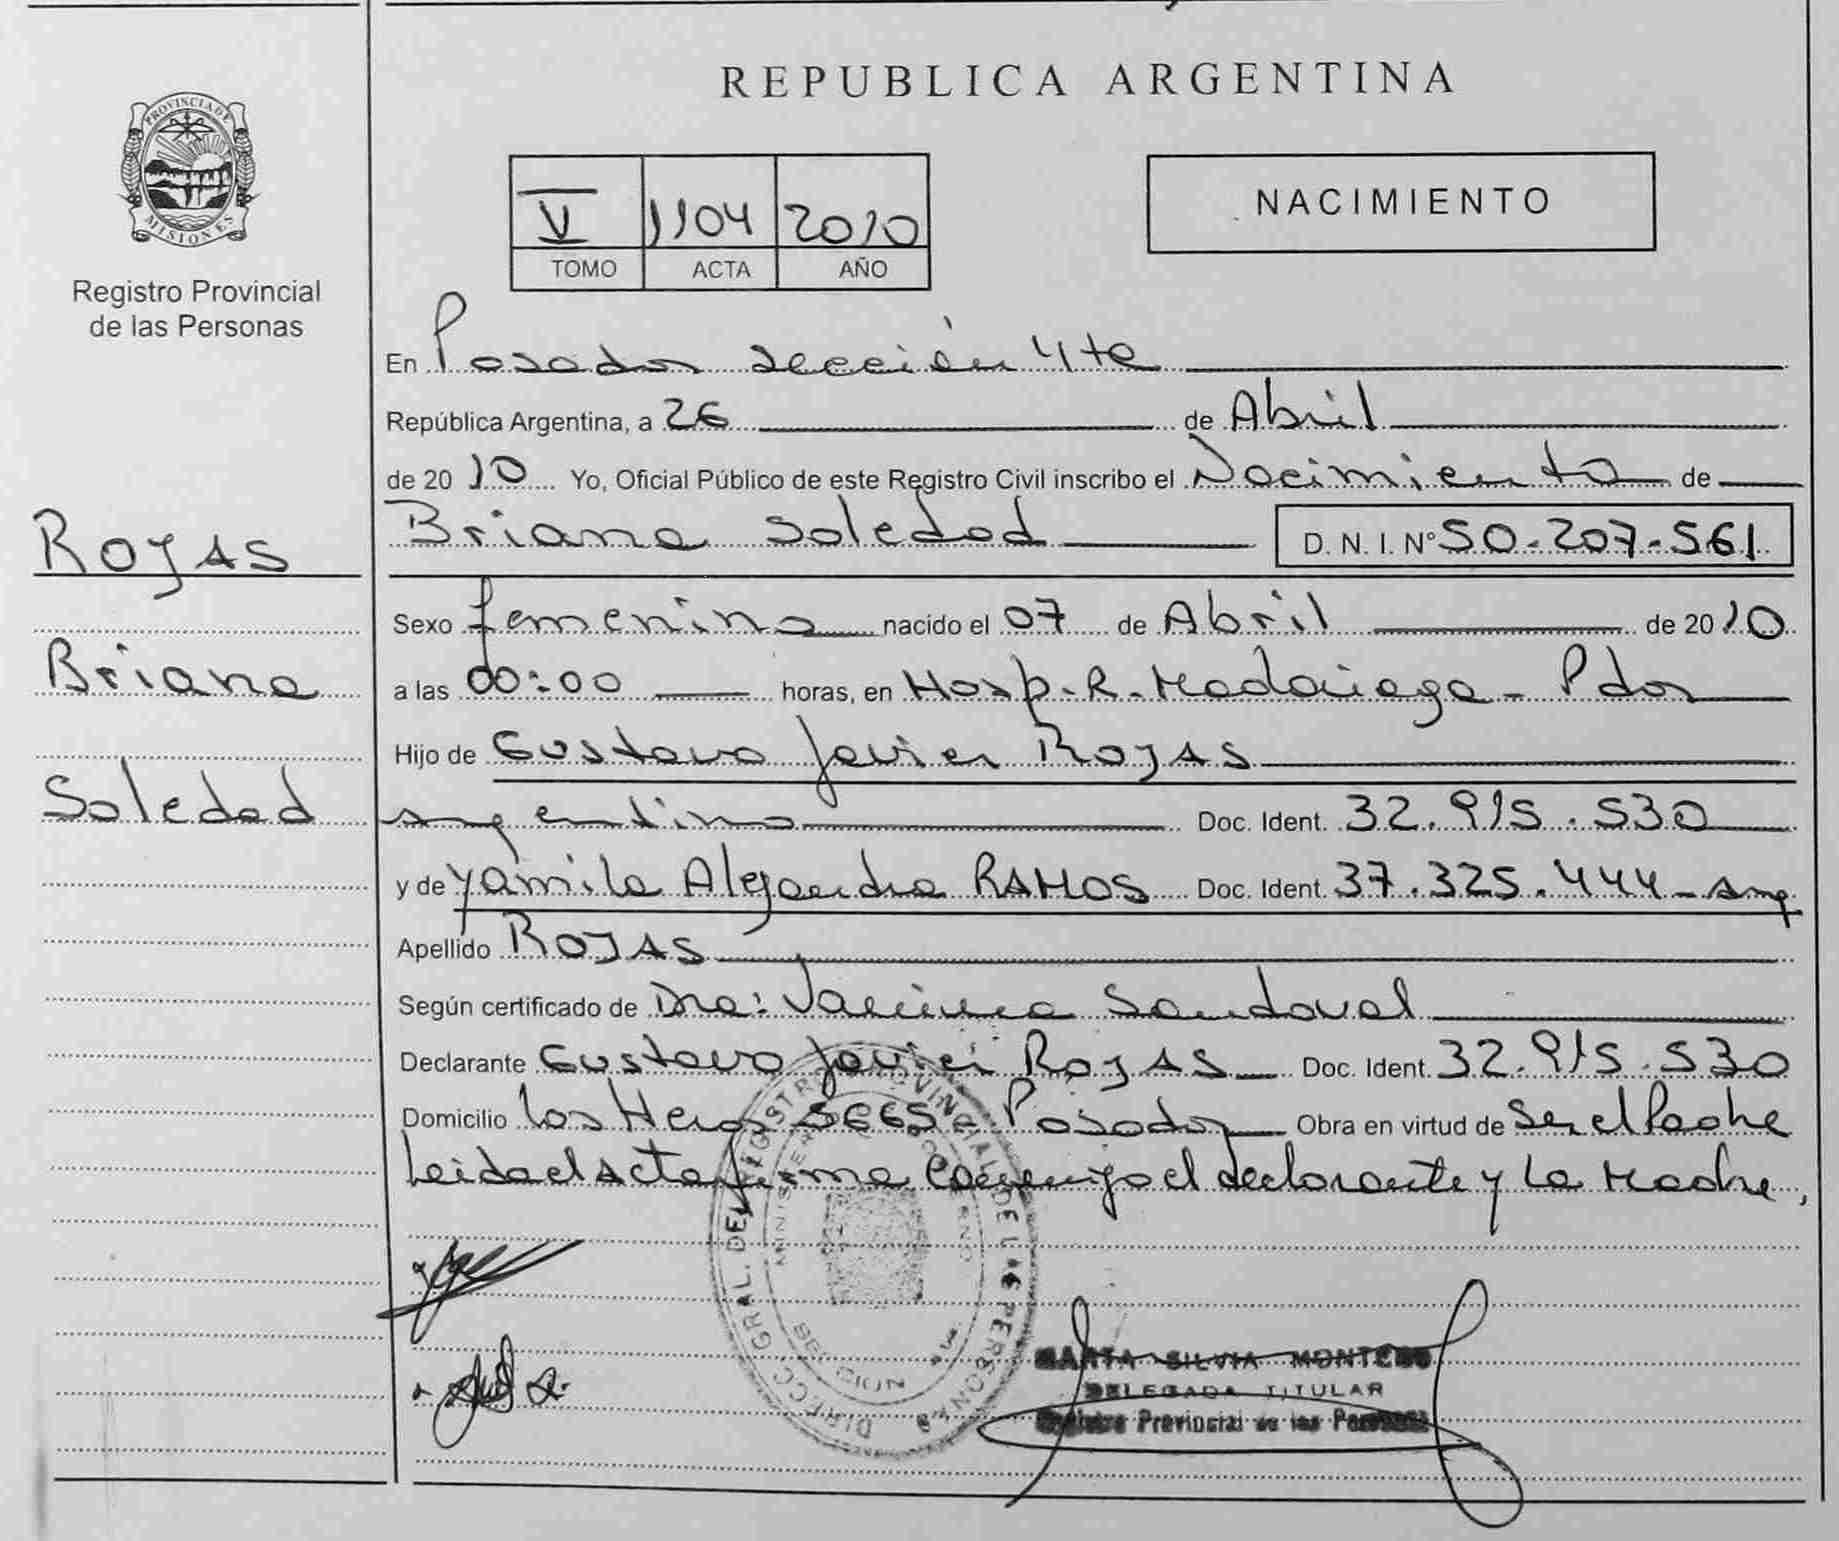 REPUBLICA ARGENTINA
PROVINCIA DE
MISIONES
Registro Provincial
de las Personas
V 1104 2010
TOMO ACTA AÑO
NACIMIENTO
En Posadas sección 4ta
República Argentina, a 26 de Abril
de 2010 Yo, Oficial Público de este Registro Civil inscribo el Nacimiento de
Briana Soledad D. N. I. N° 50.207.561
ROJAS
Briana
Soledad
Sexo femenino nacido el 07 de Abril de 2010
a las 00:00 horas, en Hosp. R. Madariaga - Pdas
Hijo de Gustavo Javier ROJAS
argentino Doc. Ident. 32.915.530
y de Yamila Alejandra RAMOS Doc. Ident. 37.325.444 - arg
Apellido ROJAS
Según certificado de Dra: Sandoval
Declarante Gustavo Javier ROJAS Doc. Ident. 32.915.530
Domicilio Los Posadas Obra en virtud de Ser el Padre
Leida el Acta firma conmigo el declarante y La Madre,
DIRECC GRAL. DEL REGISTRO PROVINCIAL DE LAS PERSONAS
MARTA SILVIA MONTERO
DELEGADA TITULAR
Registro Provincial de las Personas